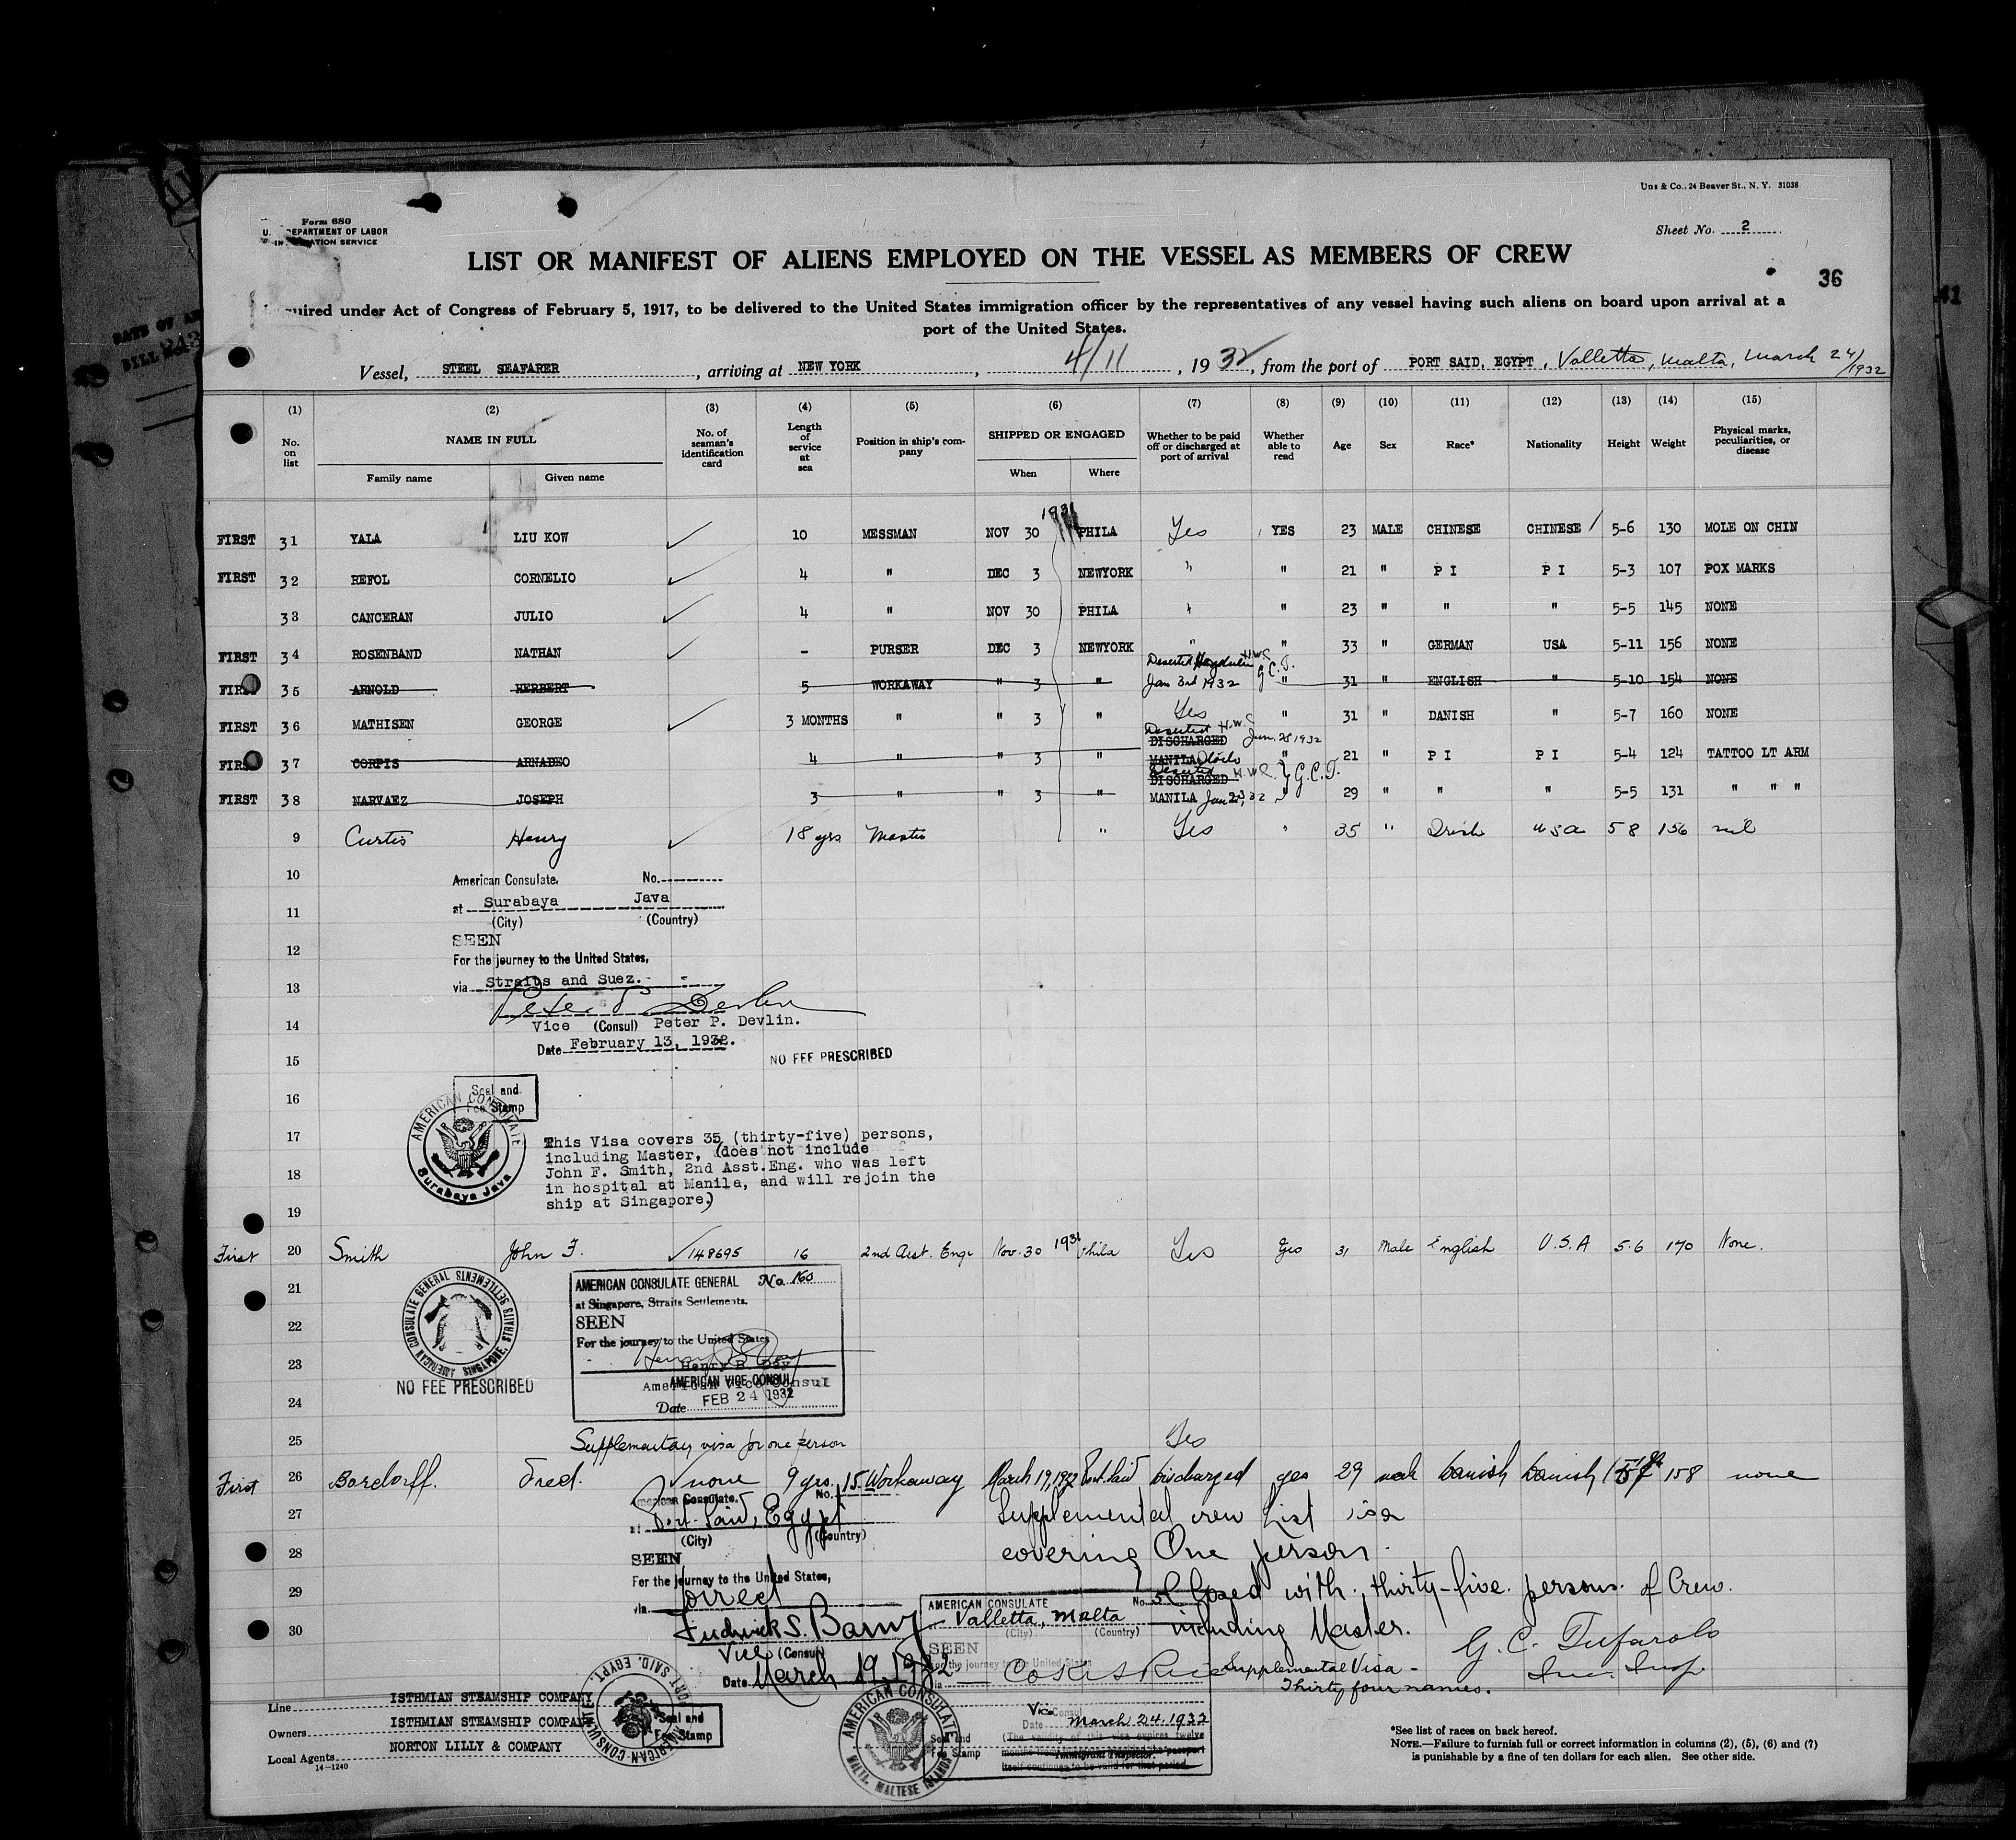 Uns & Co., 24 Beaver St., N. Y. 31038
Form 680
DEPARTMENT OF LABOR
SERVICE
Sheet No. 2
LIST OR MANIFEST OF ALIENS EMPLOYED ON THE VESSEL AS MEMBERS OF CREW
36
41
under Act of Congress of February 5, 1917, to be delivered to the United States immigration officer by the representatives of any vessel having such aliens on board upon arrival at a
port of the United States.
Vessel, STEEL SEAFARER, arriving at NEW YORK, 4/11, 1932, from the port of PORT SAID, EGYPT, Valletta, Malta, March 24/1932
(1) (2) (3) (4) (5) (6) (7) (8) (9) (10) (11) (12) (13) (14) (15)
No. on list
NAME IN FULL
Family name
Given name
No. of seaman's identification card
Length of service at sea
Position in ship's company
SHIPPED OR ENGAGED
When
Where
Whether to be paid off or discharged at port of arrival
Whether able to read
Age
Sex
Race*
Nationality
Height
Weight
Physical marks, peculiarities, or disease
1931
FIRST 31 YALA LIU KOW 10 MESSMAN NOV 30 PHILA Yes YES 23 MALE CHINESE CHINESE 5-6 130 MOLE ON CHIN
FIRST 32 REFOL CORNELIO 4 " DEC 3 NEWYORK " " 21 " P I P I 5-3 107 POX MARKS
33 CANCERAN JULIO 4 " NOV 30 PHILA " " 23 " " " 5-5 145 NONE
FIRST 34 ROSENBAND NATHAN - PURSER DEC 3 NEWYORK " " 33 " GERMAN USA 5-11 156 NONE
Deserted Honolulu H.W.C. G.C.T.
FIRST 35 ARNOLD HERBERT 5 WORKAWAY " 3 " Jan 3rd 1932 " 31 " ENGLISH " 5-10 154 NONE
FIRST 36 MATHISEN GEORGE 3 MONTHS " " 3 " Yes " 31 " DANISH " 5-7 160 NONE
Deserted H.W.C.
DISCHARGED Jan. 28 1932
FIRST 37 CORPIS ARNADEO 4 " " 3 " MANILA Iloilo " 21 " P I P I 5-4 124 TATTOO LT ARM
Deserted H.W.C. G.C.T.
DISCHARGED
FIRST 38 NARVAEZ JOSEPH 3 " " 3 " MANILA Jan 23, 32 " 29 " " " 5-5 131 " " "
9 Curtis Henry 18 yrs Master " Yes " 35 " Irish USA 5 8 156 nil
10
American Consulate. No.
11
at Surabaya Java
(City) (Country)
12
SEEN
For the journey to the United States,
13
via Straits and Suez.
Peter P. Devlin
14
Vice (Consul) Peter P. Devlin.
Date February 13, 1932.
15
NO FEE PRESCRIBED
16
Seal and
Fee Stamp
AMERICAN CONSULATE
Surabaya Java
17
This Visa covers 35 (thirty-five) persons,
including Master, (does not include
18
John F. Smith, 2nd Asst.Eng. who was left
in hospital at Manila, and will rejoin the
19
ship at Singapore)
First 20 Smith John F. 148695 16 2nd Asst. Engr Nov. 30 1931 Phila Yes Yes 31 Male English U.S.A 5-6 170 None.
21
AMERICAN CONSULATE GENERAL No. 160
AMERICAN CONSULATE GENERAL SINGAPORE, STRAITS SETTLEMENTS
at Singapore, Straits Settlements.
22
SEEN
For the journey to the United States
23
Henry B. Day
AMERICAN VICE CONSUL
American Vice Consul
NO FEE PRESCRIBED
24
Date FEB 24 1932
25
Supplementary visa for one person
Yes
First 26 Bordorff. Fred. none 9 yrs. Workaway March 19, 1932 Port Said Discharged yes 29 male Danish Danish 158 none
American Consulate. No. 15
27
at Port-Said, Egypt
(City) (Country)
Supplemental crew list visa
28
covering One person.
SEEN
For the journey to the United States,
29
via direct
Closed with thirty-five persons of Crew.
30
including Master.
Vice (Consul)
Date March 19, 1932.
AMERICAN CONSULATE No.
Valletta, Malta
(City) (Country)
SEEN
For the journey to the United States
Supplemental Visa -
Thirty four names.
G. C. Tufarolo
Imm. Insp.
Vice Consul
Date March 24. 1932
(The validity of this visa expires twelve
Immigrant Inspector.
itself continues to be valid for that period.
Seal and
Fee Stamp
AMERICAN CONSULATE PORT SAID, EGYPT.
Seal and
Fee Stamp
AMERICAN CONSULATE
MALTA, MALTESE ISLANDS
Line ISTHMIAN STEAMSHIP COMPANY
Owners ISTHMIAN STEAMSHIP COMPANY
Local Agents NORTON LILLY & COMPANY
14-1240
*See list of races on back hereof.
NOTE.—Failure to furnish full or correct information in columns (2), (5), (6) and (7)
is punishable by a fine of ten dollars for each alien. See other side.